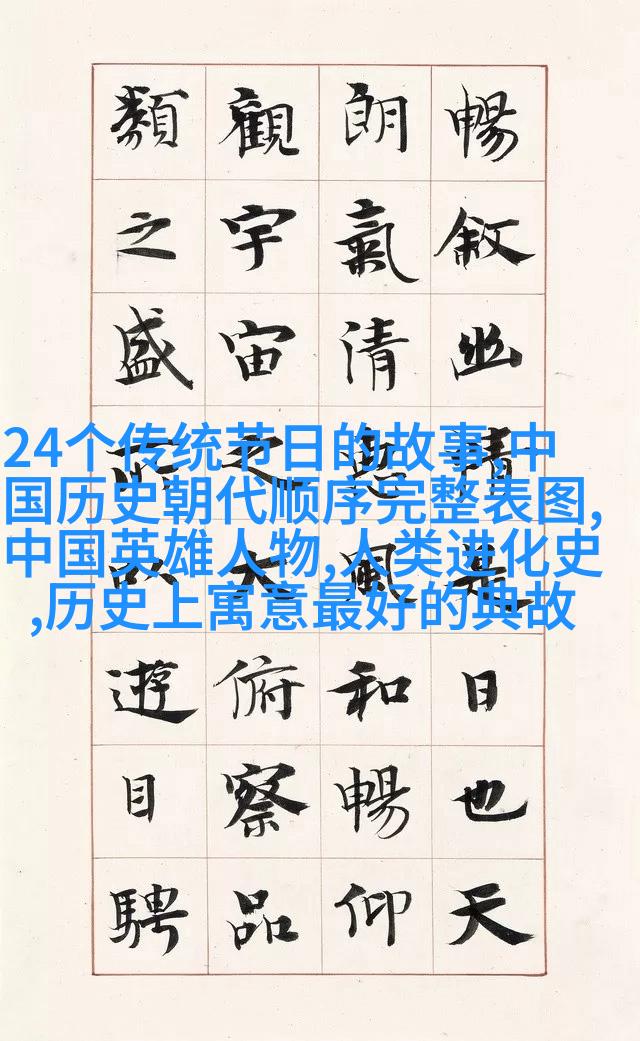 暢敘幽情是日也天
朗氣清惠風和暢仰
觀宇宙之大俯察品
類之盛所以遊目騁
24个传统节日的故事,中
国历史朝代顺序完整表图,
中国英雄人物,人类进化史
,历史上寓意最好的典故